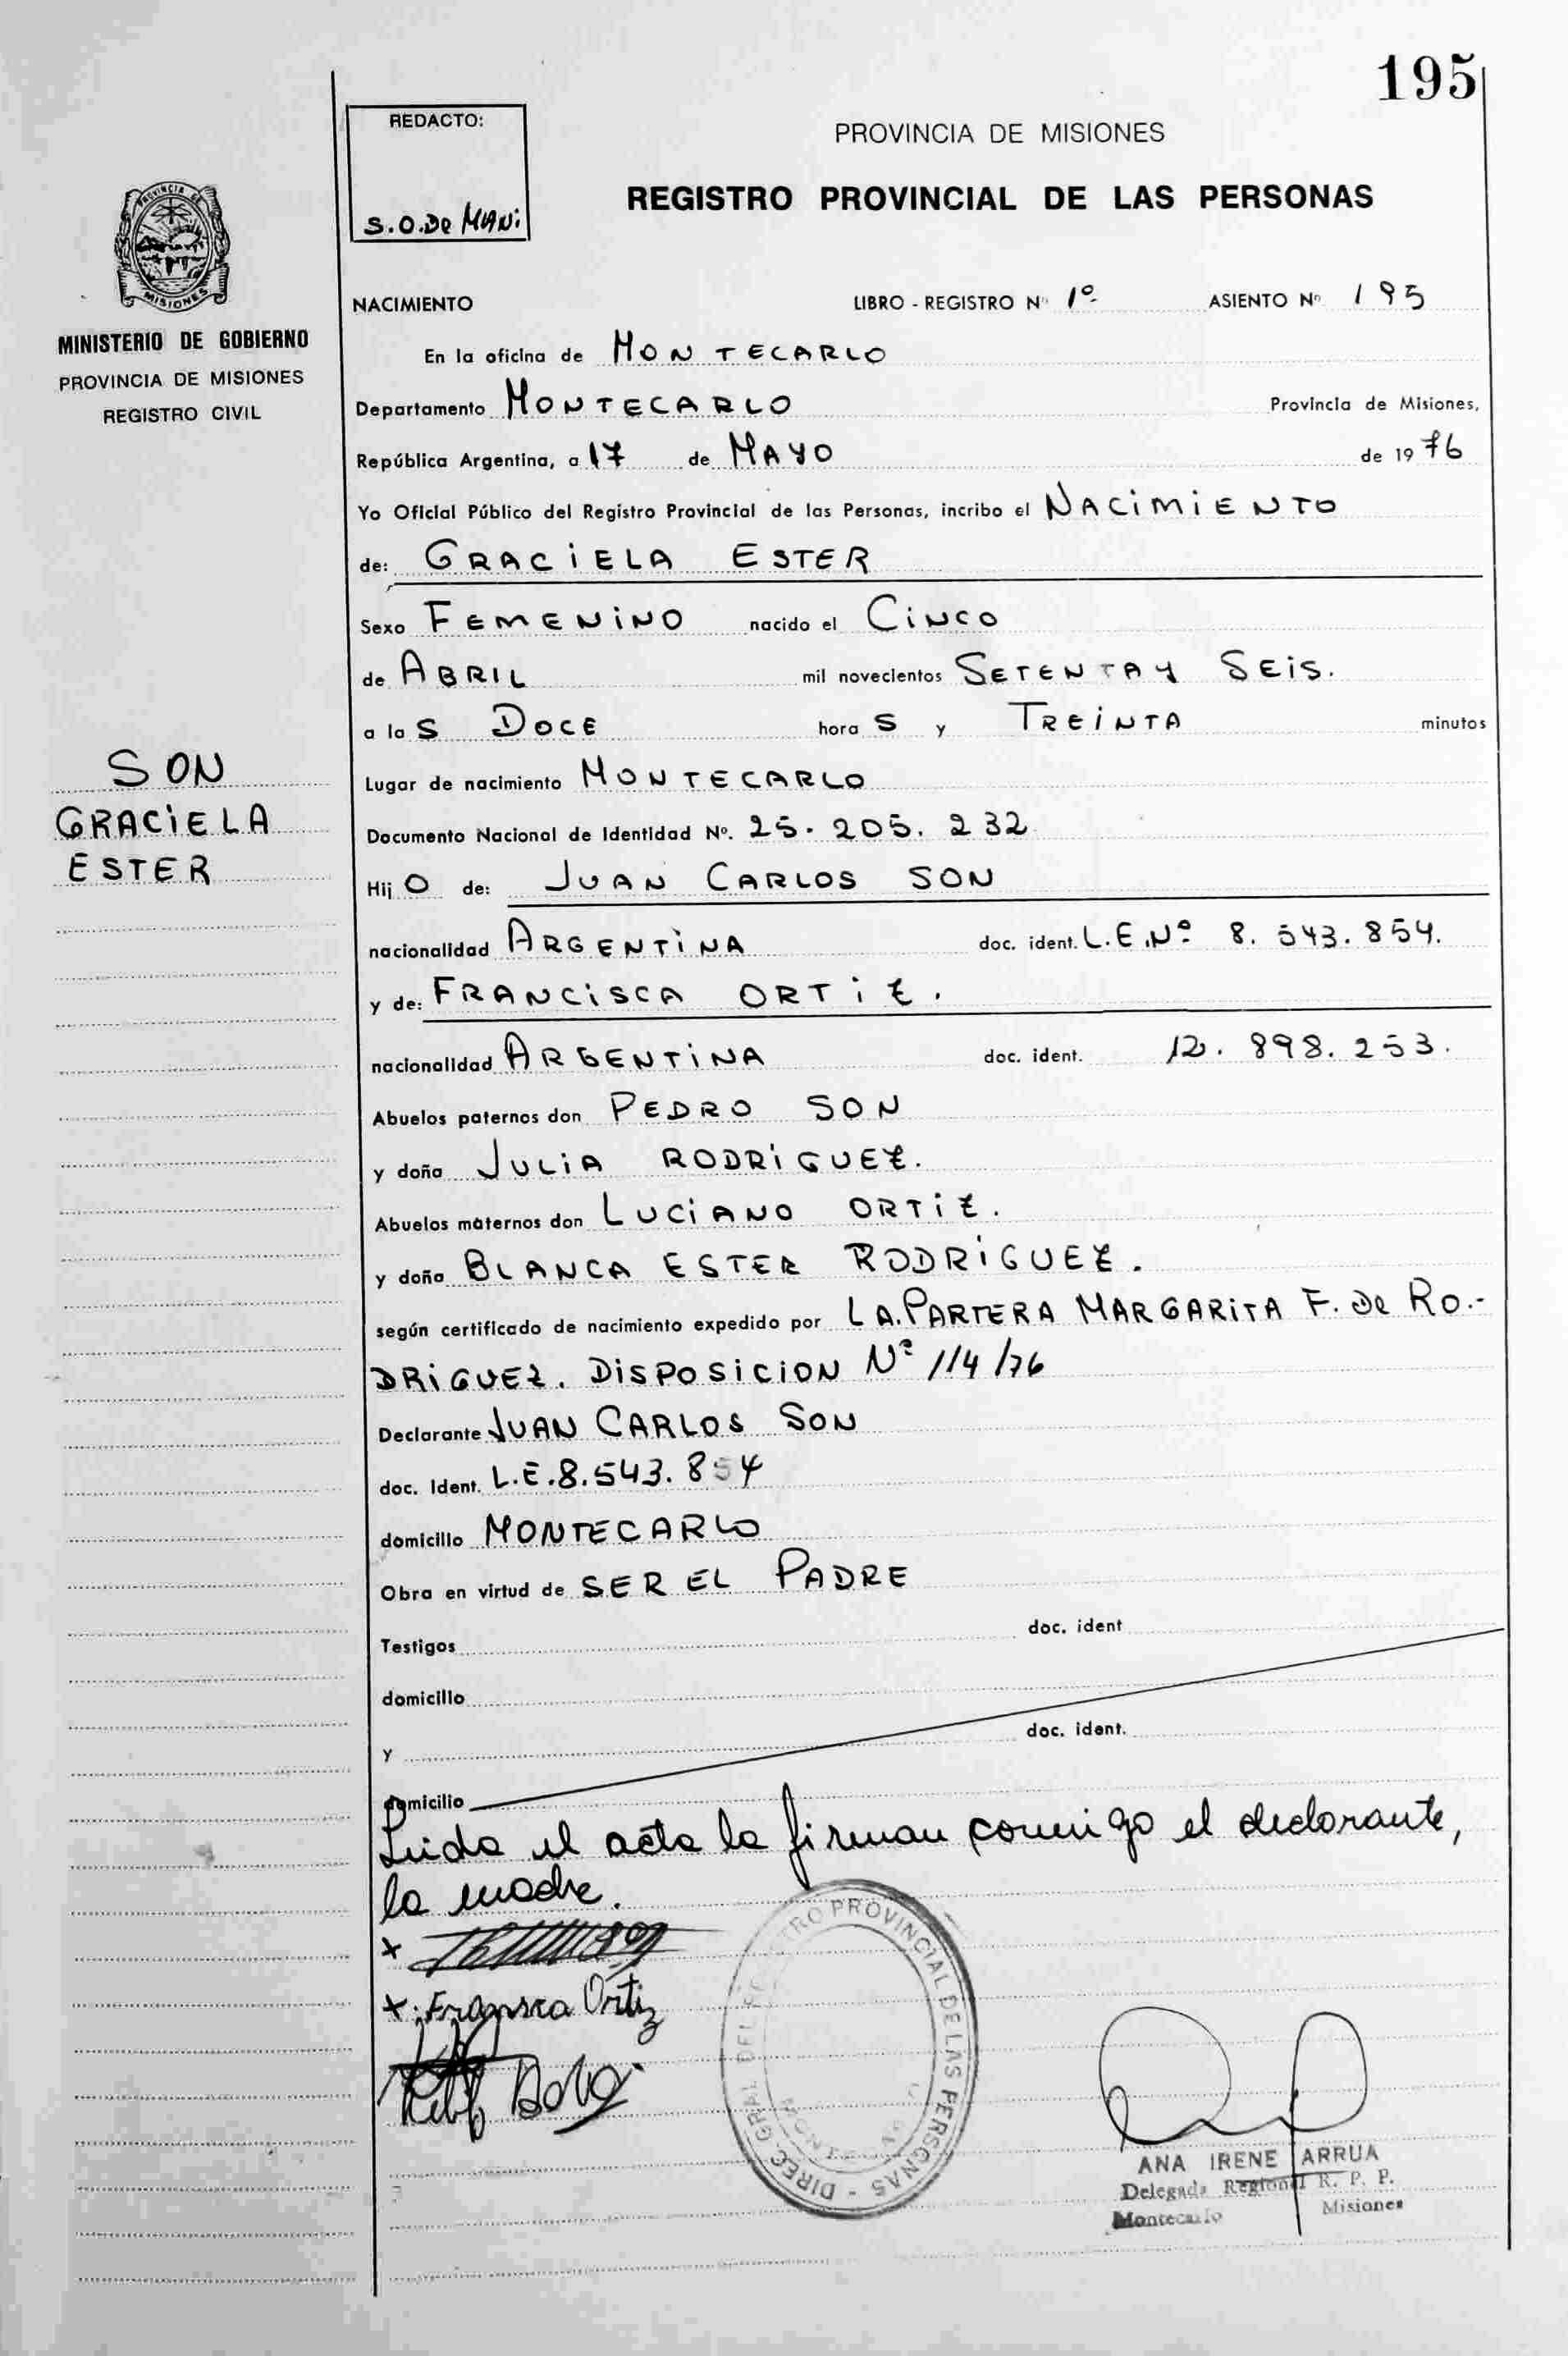 195
REDACTO:
PROVINCIA DE MISIONES
REGISTRO PROVINCIAL DE LAS PERSONAS
PROVINCIA DE
MISIONES
MINISTERIO DE GOBIERNO
PROVINCIA DE MISIONES
REGISTRO CIVIL
NACIMIENTO LIBRO - REGISTRO Nº 1º ASIENTO Nº 195
En la oficina de MONTECARLO
Departamento MONTECARLO Provincia de Misiones,
República Argentina, a 17 de MAYO de 1976
Yo Oficial Público del Registro Provincial de las Personas, incribo el NACIMIENTO
de: GRACIELA ESTER
Sexo FEMENINO nacido el CINCO
de ABRIL mil novecientos SETENTA Y SEIS.
a las DOCE horas y TREINTA minutos
Lugar de nacimiento MONTECARLO
Documento Nacional de Identidad Nº. 25.205.232
SON
GRACIELA
ESTER
Hijo de: JUAN CARLOS SON
nacionalidad ARGENTINA doc. ident. L.E.Nº 8.543.854.
y de: FRANCISCA ORTIZ.
nacionalidad ARGENTINA doc. ident. 12.898.253.
Abuelos paternos don PEDRO SON
y doña JULIA RODRIGUEZ.
Abuelos maternos don LUCIANO ORTIZ.
y doña BLANCA ESTER RODRIGUEZ.
según certificado de nacimiento expedido por LA.PARTERA MARGARITA F. DE RO.-
DRIGUEZ. DISPOSICION Nº 114/76
Declarante JUAN CARLOS SON
doc. Ident. L.E.8.543.854
domicilio MONTECARLO
Obra en virtud de SER EL PADRE
Testigos doc. ident
domicilio
y doc. ident.
domicilio
Leida el acta la firman conmigo el declarante,
la madre.
x
x. Fransica Ortiz
DIREC. GRAL. DEL REGISTRO PROVINCIAL DE LAS PERSONAS -
ANA IRENE ARRUA
Delegada Regional R. P. P.
Montecarlo Misiones